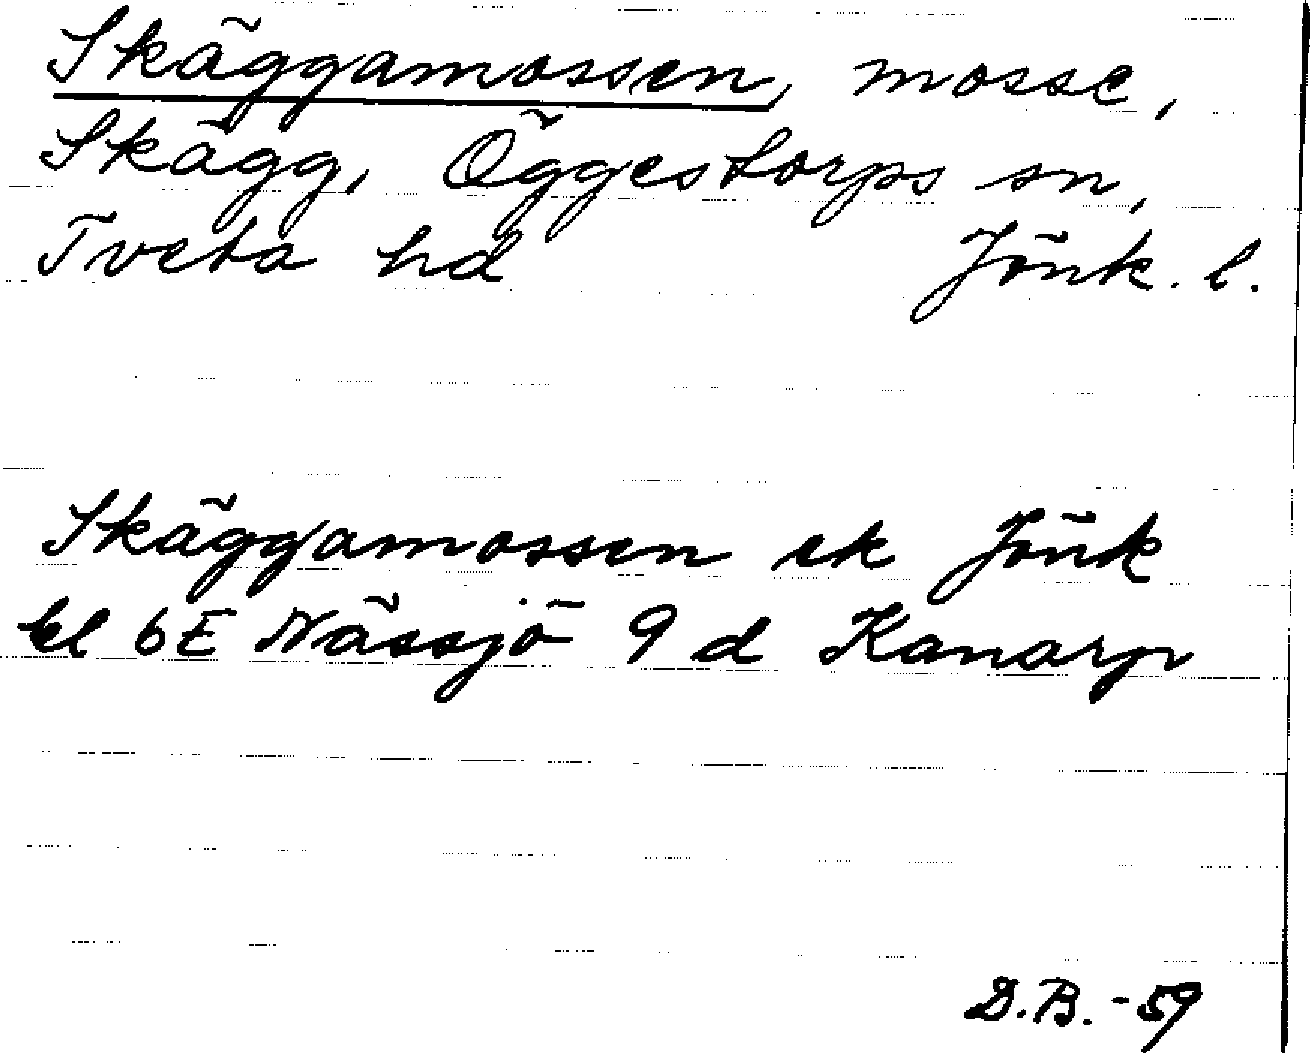 Skäggamossen, mosse,
Skägg, Öggestorps sn,
Tveta hd Jönk. l.
Skäggamossen ek Jönk
bl 6E Nässjö 9 d Kanarp
D.B. -59